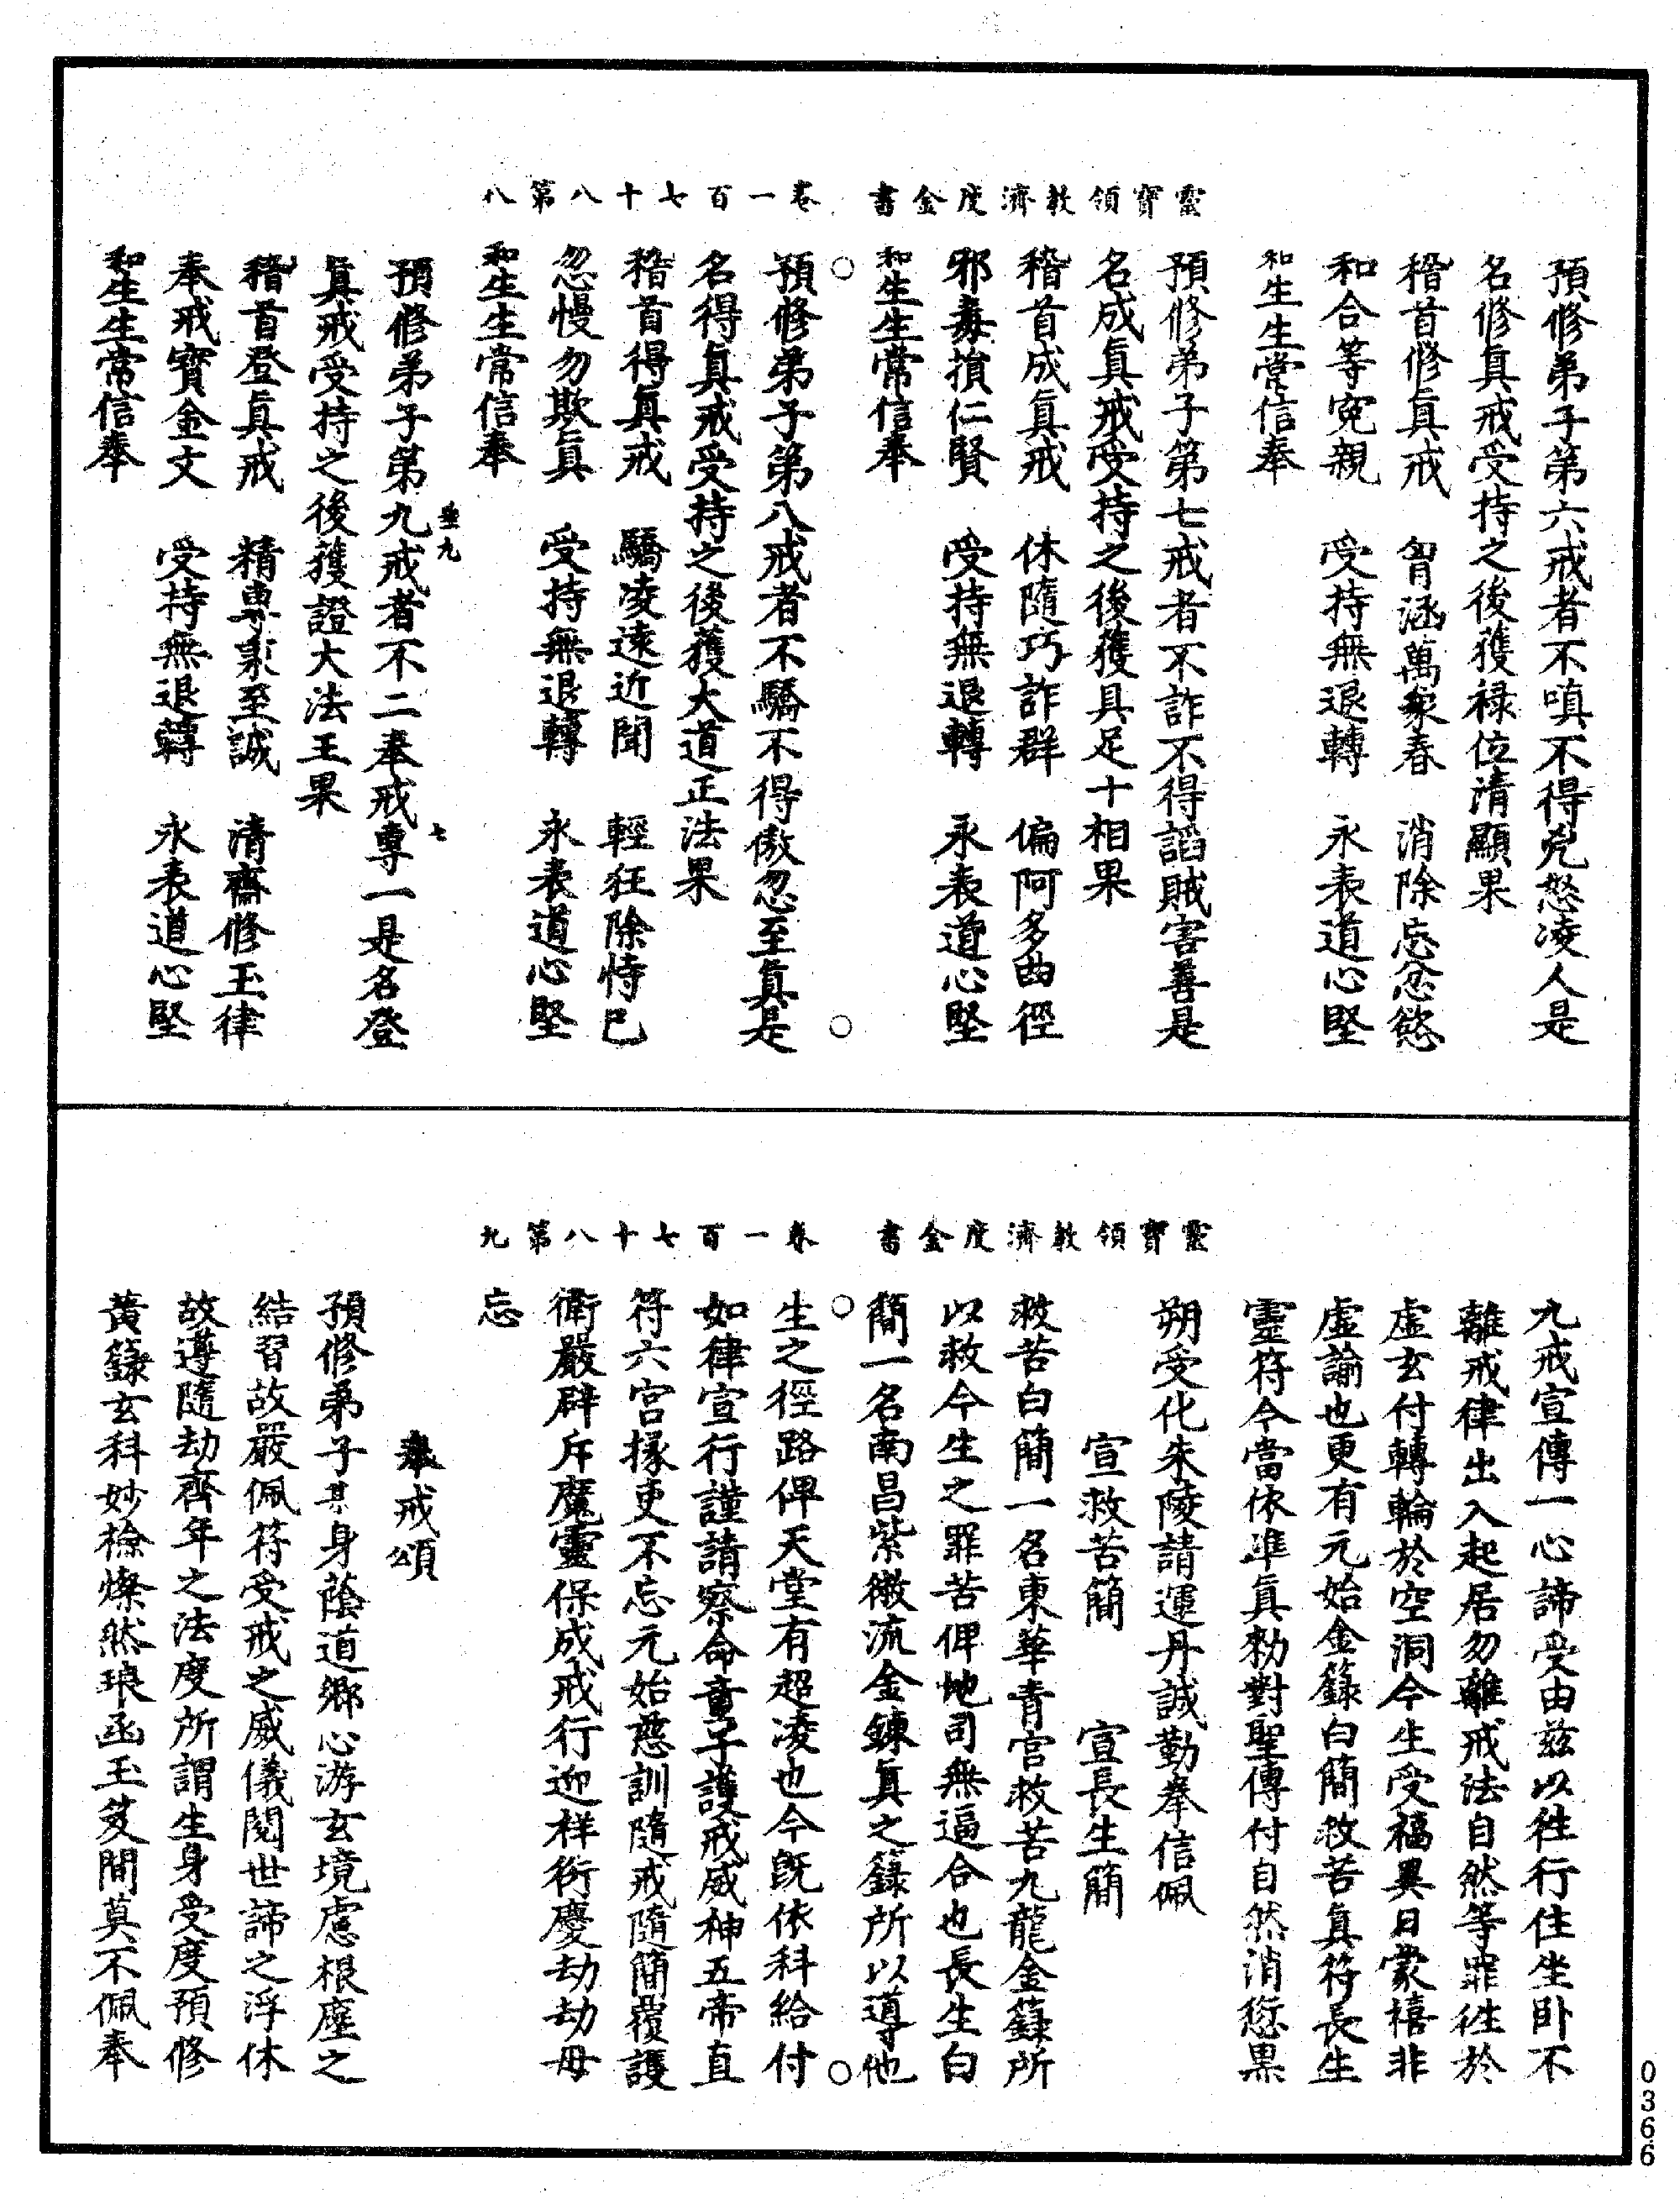 預修弟子第六戒者不嗔不得兇怒凌人是
名修眞戒受持之後獲祿位清顯果
稽首修眞戒　胷涵萬象春　消除忘忿慾
和合等寃親　受持無退轉　永表道心堅
和生生常信奉
預修弟子第七戒者不詐不得謟賊害善是
名成眞戒受持之後獲具足十相果
稽首成眞戒　休隨巧詐群　偏阿多曲徑
邪毒損仁賢　受持無退轉　永表道心堅
和生生常信奉
靈寶領教濟度金書　卷一百七十八第八
○　○
預修弟子第八戒者不驕不得傲忽至眞是
名得眞戒受持之後獲大道正法果
稽首得眞戒　驕凌遠近聞　輕狂除恃已
忽慢勿欺眞　受持無退轉　永表道心堅
和生生常信奉
垂九　七
預修弟子第九戒者不二奉戒專一是名登
眞戒受持之後獲證大法王果
稽首登眞戒　精專稟至誠　清齋修玉律
奉戒寶金文　受持無退轉　永表道心堅
和生生常信奉
九戒宣傳一心諦受由茲以往行住坐卧不
離戒律出入起居勿離戒法自然等罪往於
虛玄付轉輪於空洞今生受福異日蒙禧非
虛諭也更有元始金籙白簡救苦眞符長生
靈符今當依準眞勑對聖傳付自然消愆黑
朔受化朱陵請運丹誠勤奉信佩
宣救苦簡　宣長生簡
救苦白簡一名東華青宮救苦九龍金籙所
以救今生之罪苦俾地司無逼合也長生白
簡一名南昌紫微流金鍊眞之籙所以導他
靈寶領教濟度金書　卷一百七十八第九
○　○
生之徑路俾天堂有超凌也今旣依科給付
如律宣行謹請察命童子護戒威神五帝直
符六宮掾吏不忘元始慈訓隨戒隨簡覆護
衛嚴辟斥魔靈保成戒行迎祥衍慶劫劫毋
忘
舉戒頌
預修弟子某身蔭道鄉心游玄境慮根塵之
結習故嚴佩符受戒之威儀閱世諦之浮休
故遵隨劫齊年之法度所謂生身受度預修
黃籙玄科妙檢燦然琅函玉笈間莫不佩奉
0366